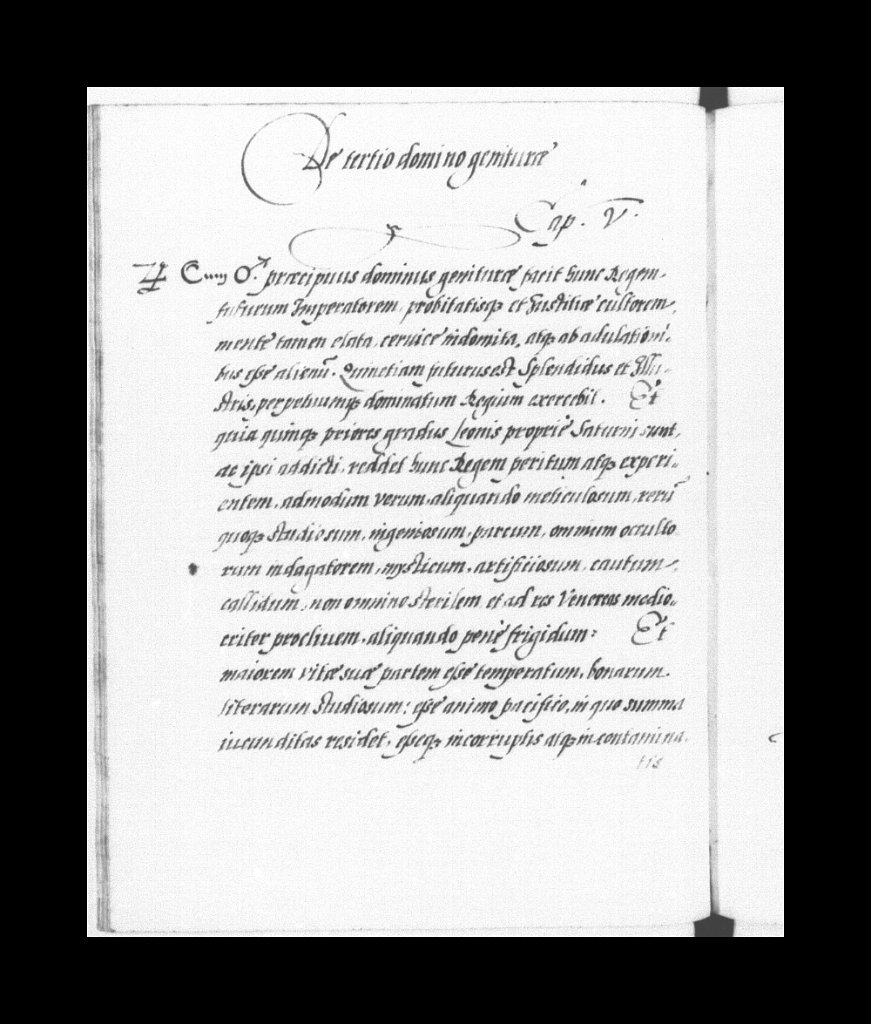 De tertio domino genituræ
Cap. V.
♃ Cum ♂ præcipuus dominus genituræ facit hunc Regem
futurum Imperatorem, probitatisq; et Justitiæ cultorem,
mente tamen elata, cervice indomita, atq; ab adulationi-
bus esse alienū. Quinetiam futurus est Splendidus et Illu-
stris, perpetuumq; dominatum Regium exercebit. Et
quia quinq; priores gradus Leonis proprie Saturni sunt,
ac ipsi addicti, reddet hunc Regem peritum atq; experi-
entem, admodum verum, aliquando meticulosum, rerū
quoq; studiosum, ingeniosum, parcum, omnium occulto
rum indagatorem, mysticum, artificiosum, cautum,
callidum, non omnino sterilem et ad res Venereas medio-
criter proclivem, aliquando penè frigidum: Et
maiorem vitæ suæ partem esse temperatum, bonarum
literarum studiosum: esse animo pacifico, in quo summa
iucunditas residet, esseq; incorruptis atq; incontamina-
tis